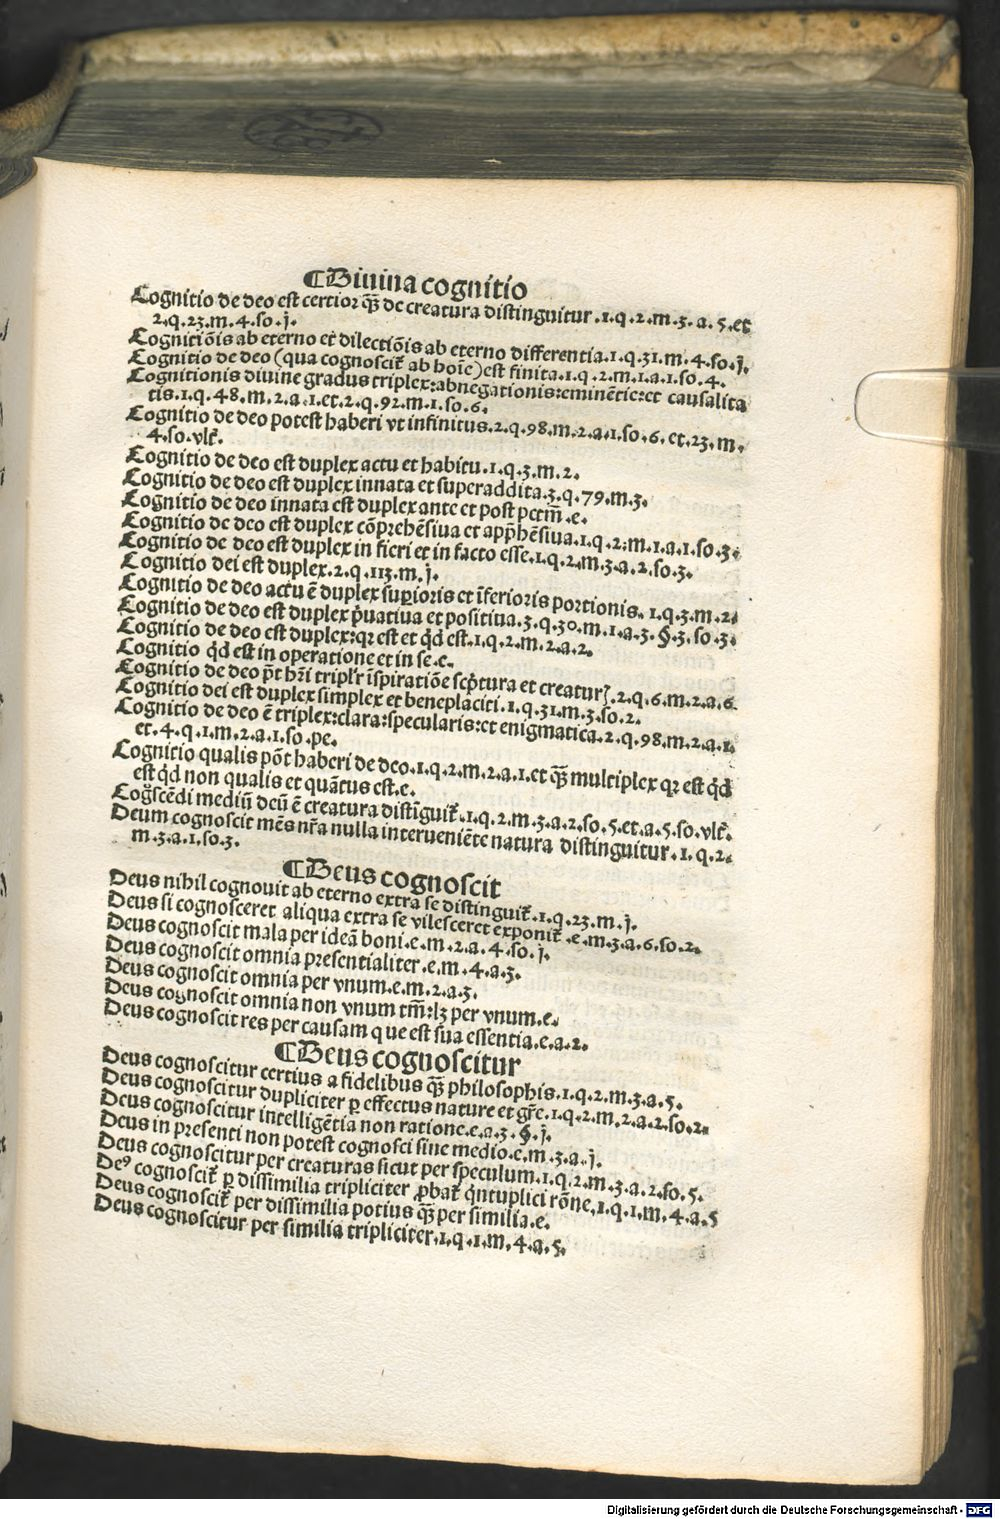 ¶Diuina cognitio
Cognitio de deo est certior qȝ̄ de creatura distinguitur.1.q.2.m.3.a.5.et
2.q.23.m.4.so.j.
Cognitiōis ab eterno et dilectiōis ab eterno differentia.1.q.31.m.4.so.j.
Cognitio de deo (qua cognoscit᷑ ab hoīe) est finita.1.q.2.m.1.a.1.so.4.
Cognitionis diuine gradus triplex:abnegationis:eminētie:et causalita
tis.1.q.48.m.2.a.1.et.2.q.92.m.1.so.6.
Cognitio de deo potest haberi vt infinitus.2.q.98.m.2.a.1.so.6.et.23.m.
4.so.vlt᷑.
Cognitio de deo est duplex actu et habitu.1.q.3.m.2.
Cognitio de deo est duplex innata et superaddita.3.q.79.m.3.
Cognitio de deo innata est duplex ante et post pctm̄.e.
Cognitio de deo est duplex cōprehēsiua et app̄hēsiua.1.q.2.m.1.a.1.so.3.
Cognitio de deo est duplex in fieri et in facto esse.1.q.2.m.3.a.2.so.3.
Cognitio dei est duplex.2.q.113.m.j.
Cognitio de deo actu ē duplex suꝑioris et īferioris portionis.1.q.3.m.2.
Cognitio de deo est duplex p̄uatiua et positiua.3.q.30.m.1.a.3.§.3.so.3.
Cognitio de deo est duplex:qꝛ est et qͥd est.1.q.2.m.2.a.2.
Cognitio qͥd est in operatione et in se.e.
Cognitio de deo p̄t hr̄i tripl'r īspiratiōe scͥptura et creaturꝭ.2.q.6.m.2.a.6.
Cognitio dei est duplex simplex et beneplaciti.1.q.31.m.3.so.2.
Cognitio de deo ē triplex:clara:specularis:et enigmatica.2.q.98.m.2.a.1.
et.4.q.1.m.2.a.1.so.pe.
Cognitio qualis pōt haberi de deo.1.q.2.m.2.a.1.et qȝ̄ multiplex qꝛ est qͥd
est qͥd non qualis et quātus est.e.
Cogͦscēdi mediū deū ē creatura distīguit᷑.1.q.2.m.3.a.2.so.5.et.a.5.so.vlt᷑.
Deum cognoscit mēs nr̄a nulla interueniēte natura distinguitur.1.q.2.
m.3.a.1.so.3.
¶Deus cognoscit
Deus nihil cognouit ab eterno extra se distinguit᷑.1.q.23.m.j.
Deus si cognosceret aliqua extra se vilesceret exponit᷑.e.m.3.a.6.so.2.
Deus cognoscit mala per ideā boni.e.m.2.a.4.so.j.
Deus cognoscit omnia presentialiter.e.m.4.a.3.
Deus cognoscit omnia per vnum.e.m.2.a.3.
Deus cognoscit omnia non vnum tm̄:lȝ per vnum.e.
Deus cognoscit res per causam que est sua essentia.e.a.2.
¶Deus cognoscitur
Deus cognoscitur certius a fidelibus qȝ̄ philosophis.1.q.2.m.3.a.5.
Deus cognoscitur dupliciter ꝑ effectus nature et gr̄e.1.q.2.m.2.a.2.so.2.
Deus cognoscitur intelligētia non ratione.e.a.3.§.j.
Deus in presenti non potest cognosci sine medio.e.m.3.a.j.
Deus cognoscitur per creaturas sicut per speculum.1.q.2.m.3.a.2.so.5.
Deꝰ cognoscit᷑ ꝑ dissimilia tripliciter ꝓbat᷑ qͥntuplici rōne.1.q.1.m.4.a.5
Deus cognoscit᷑ per dissimilia potius qȝ̄ per similia.e.
Deus cognoscitur per similia tripliciter.1.q.1.m.4.a.5.
Digitalisierung gefördert durch die Deutsche Forschungsgemeinschaft - DFG